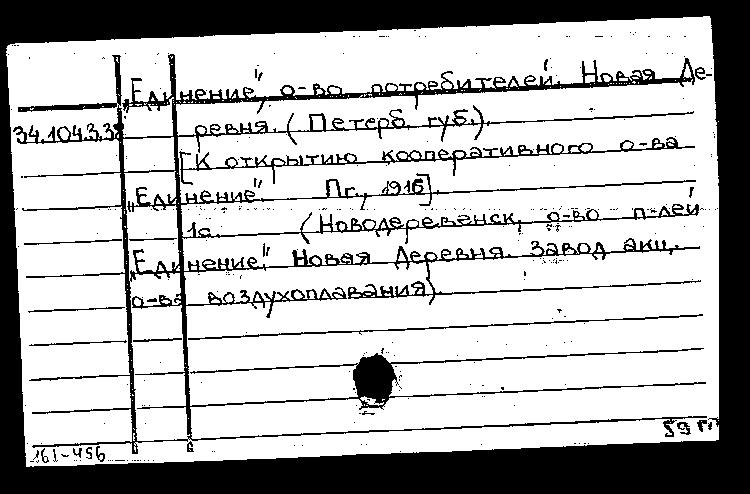 „Единение", о-во потребителей. Новая Де-
34.104.3.38 ревня. (Петерб. губ.).
[К открытию кооперативного о-ва
„Единение". Пг., 1916].
1а. (Новодеревенск. о-во п-лей
„Единение". Новая Деревня. Завод акц.
о-ва воздухоплавания).
161-456